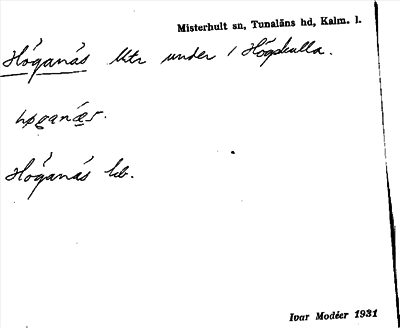 Misterhult sn, Tunaläns hd, Kalm. l.
Höganäs under 1 Högskulla.
Höganäs
Ivar Modéer 1931